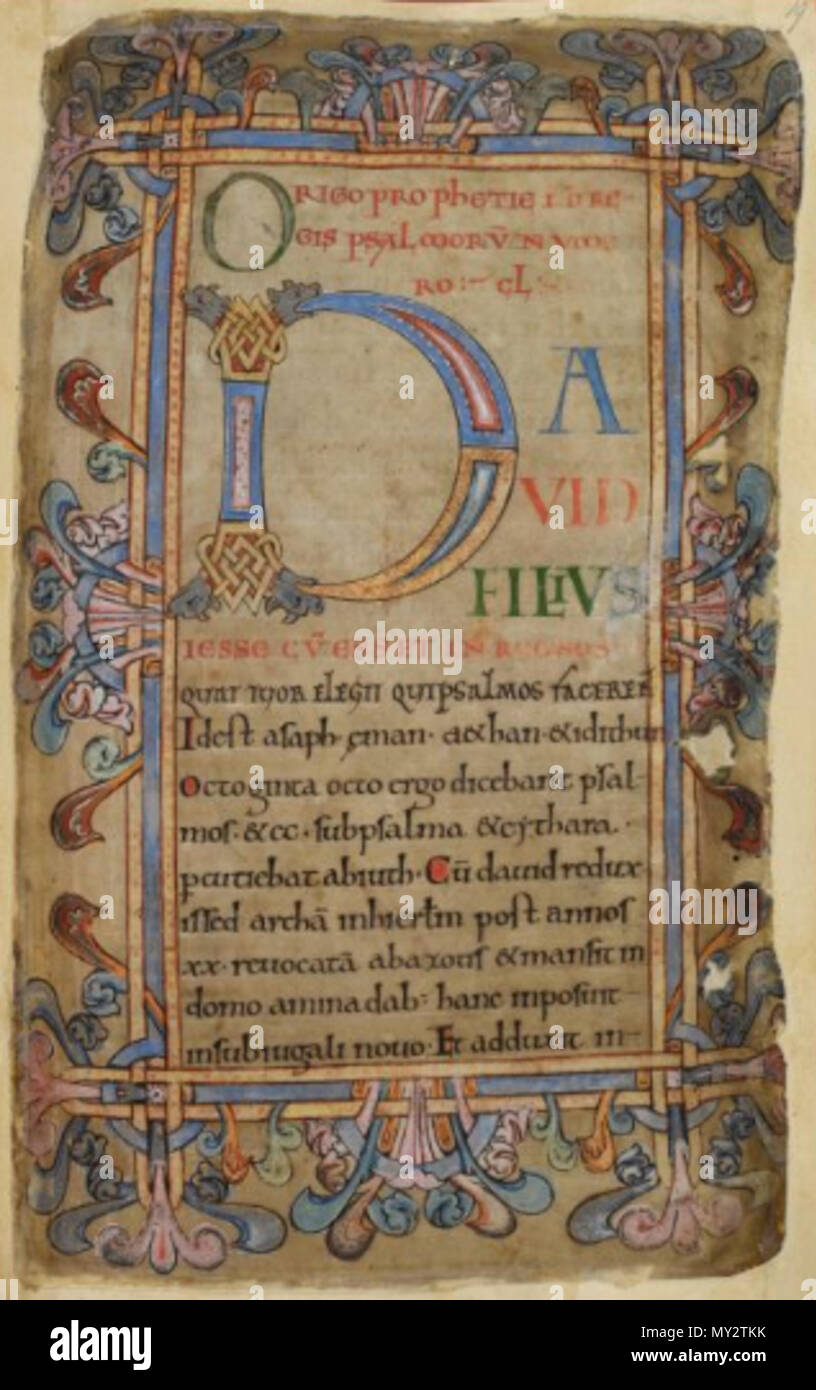 ORIGO PROPHETIE
GIS PSALMORV̄ NVME
RO :~ CL
DA
VID
FILIVS
IESSE CV̄ ESSET IN REGNO SVO
QUATTUOR ELEGIT QUI PSALMOS FACERE
Id est asaph · eman · & ethan · & idithun
Octoginta octo ergo dicebant psal
mos · & cc · subpsalma & cythara ·
percutiebat abiuth · Cū dauid redux
issed archā in hierl̄m post annos
xx · reuocatā ab azotis & mansit in
domo aminadab : hanc inposuit
in subiugali nouo · Et adduxit in
alamy stock photo
alamy
Image ID: MY2TKK
www.alamy.com